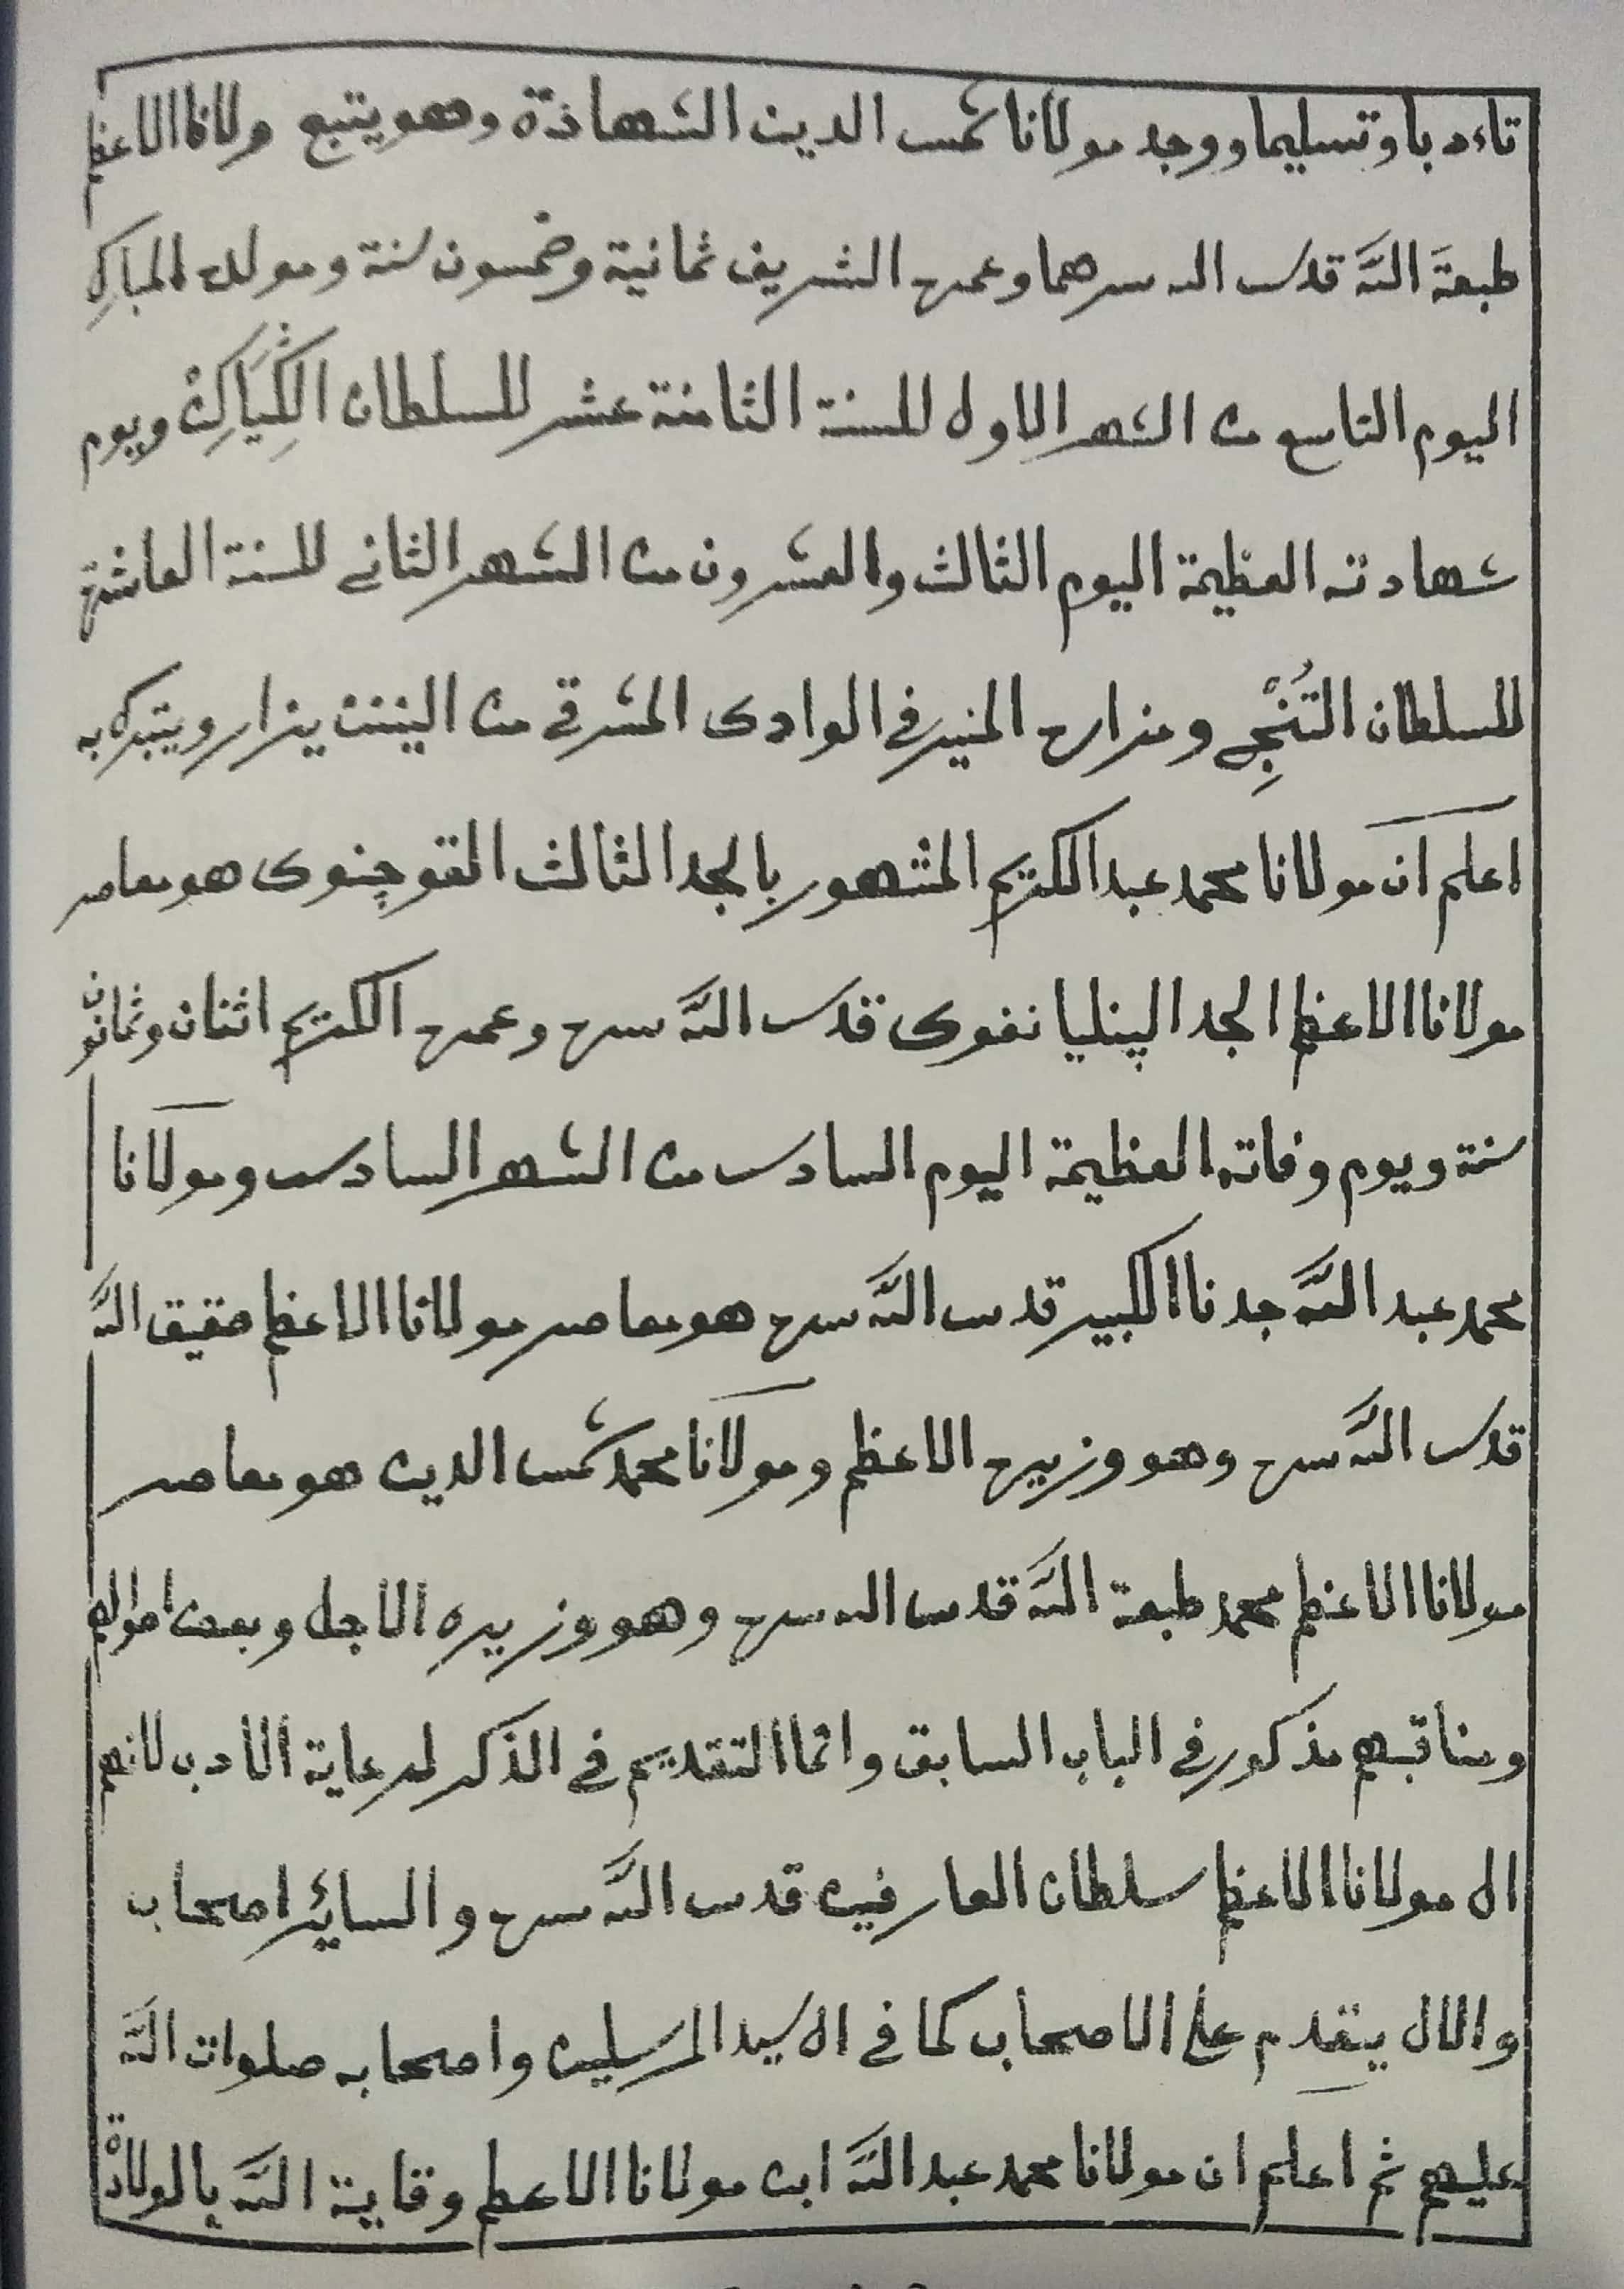 تاءدبا وتسليما ووجد مولانا شمس الدين الشهادة وهو يتبع مولانا الاعظم
طبعة الله قدس الله سرهما وعمره الشريف ثمانية وخمسون سنة ومولده المبارك
اليوم التاسع من الشهر الاول للسنة الثامنة عشر للسلطان ويوم
شهادته العظيمة اليوم الثالث والعشرون من الشهر الثاني للسنة العاشرة
للسلطان التُنْجِي ومزاره المنير في الوادى المشرقي من يزار ويتبرك به
اعلم ان مولانا محمد عبد الكريم المشهور بالجد الثالث القوچنوى هو معاصر
مولانا الاعظم الجد الپنليانفوى قدس الله سره وعمره الكريم اثنان وثمانون
سنة ويوم وفاته العظيمة اليوم السادس من الشهر السادس ومولانا
محمد عبد الله جدنا الكبير قدس الله سره هو معاصر مولانا الاعظم حقيق الله
قدس الله سره وهو وزيره الاعظم ومولانا محمد شمس الدين هو معاصر
مولانا الاعظم محمد طبعة الله قدس الله سره وهو وزيره الاجل وبعض احوالهم
ومناقبهم مذكور في الباب السابق وانما التقديم في الذكر لرعاية الأدب لانهم
ال مولانا الاعظم سلطان العارفين قدس الله سره والسائر اصحاب
والال يتقدم على الاصحاب كما في ال سيد المرسلين واصحابه صلوات الله
عليهم ثم اعلم ان مولانا محمد عبد الله ابن مولانا الاعظم وقاية الله بالولادة